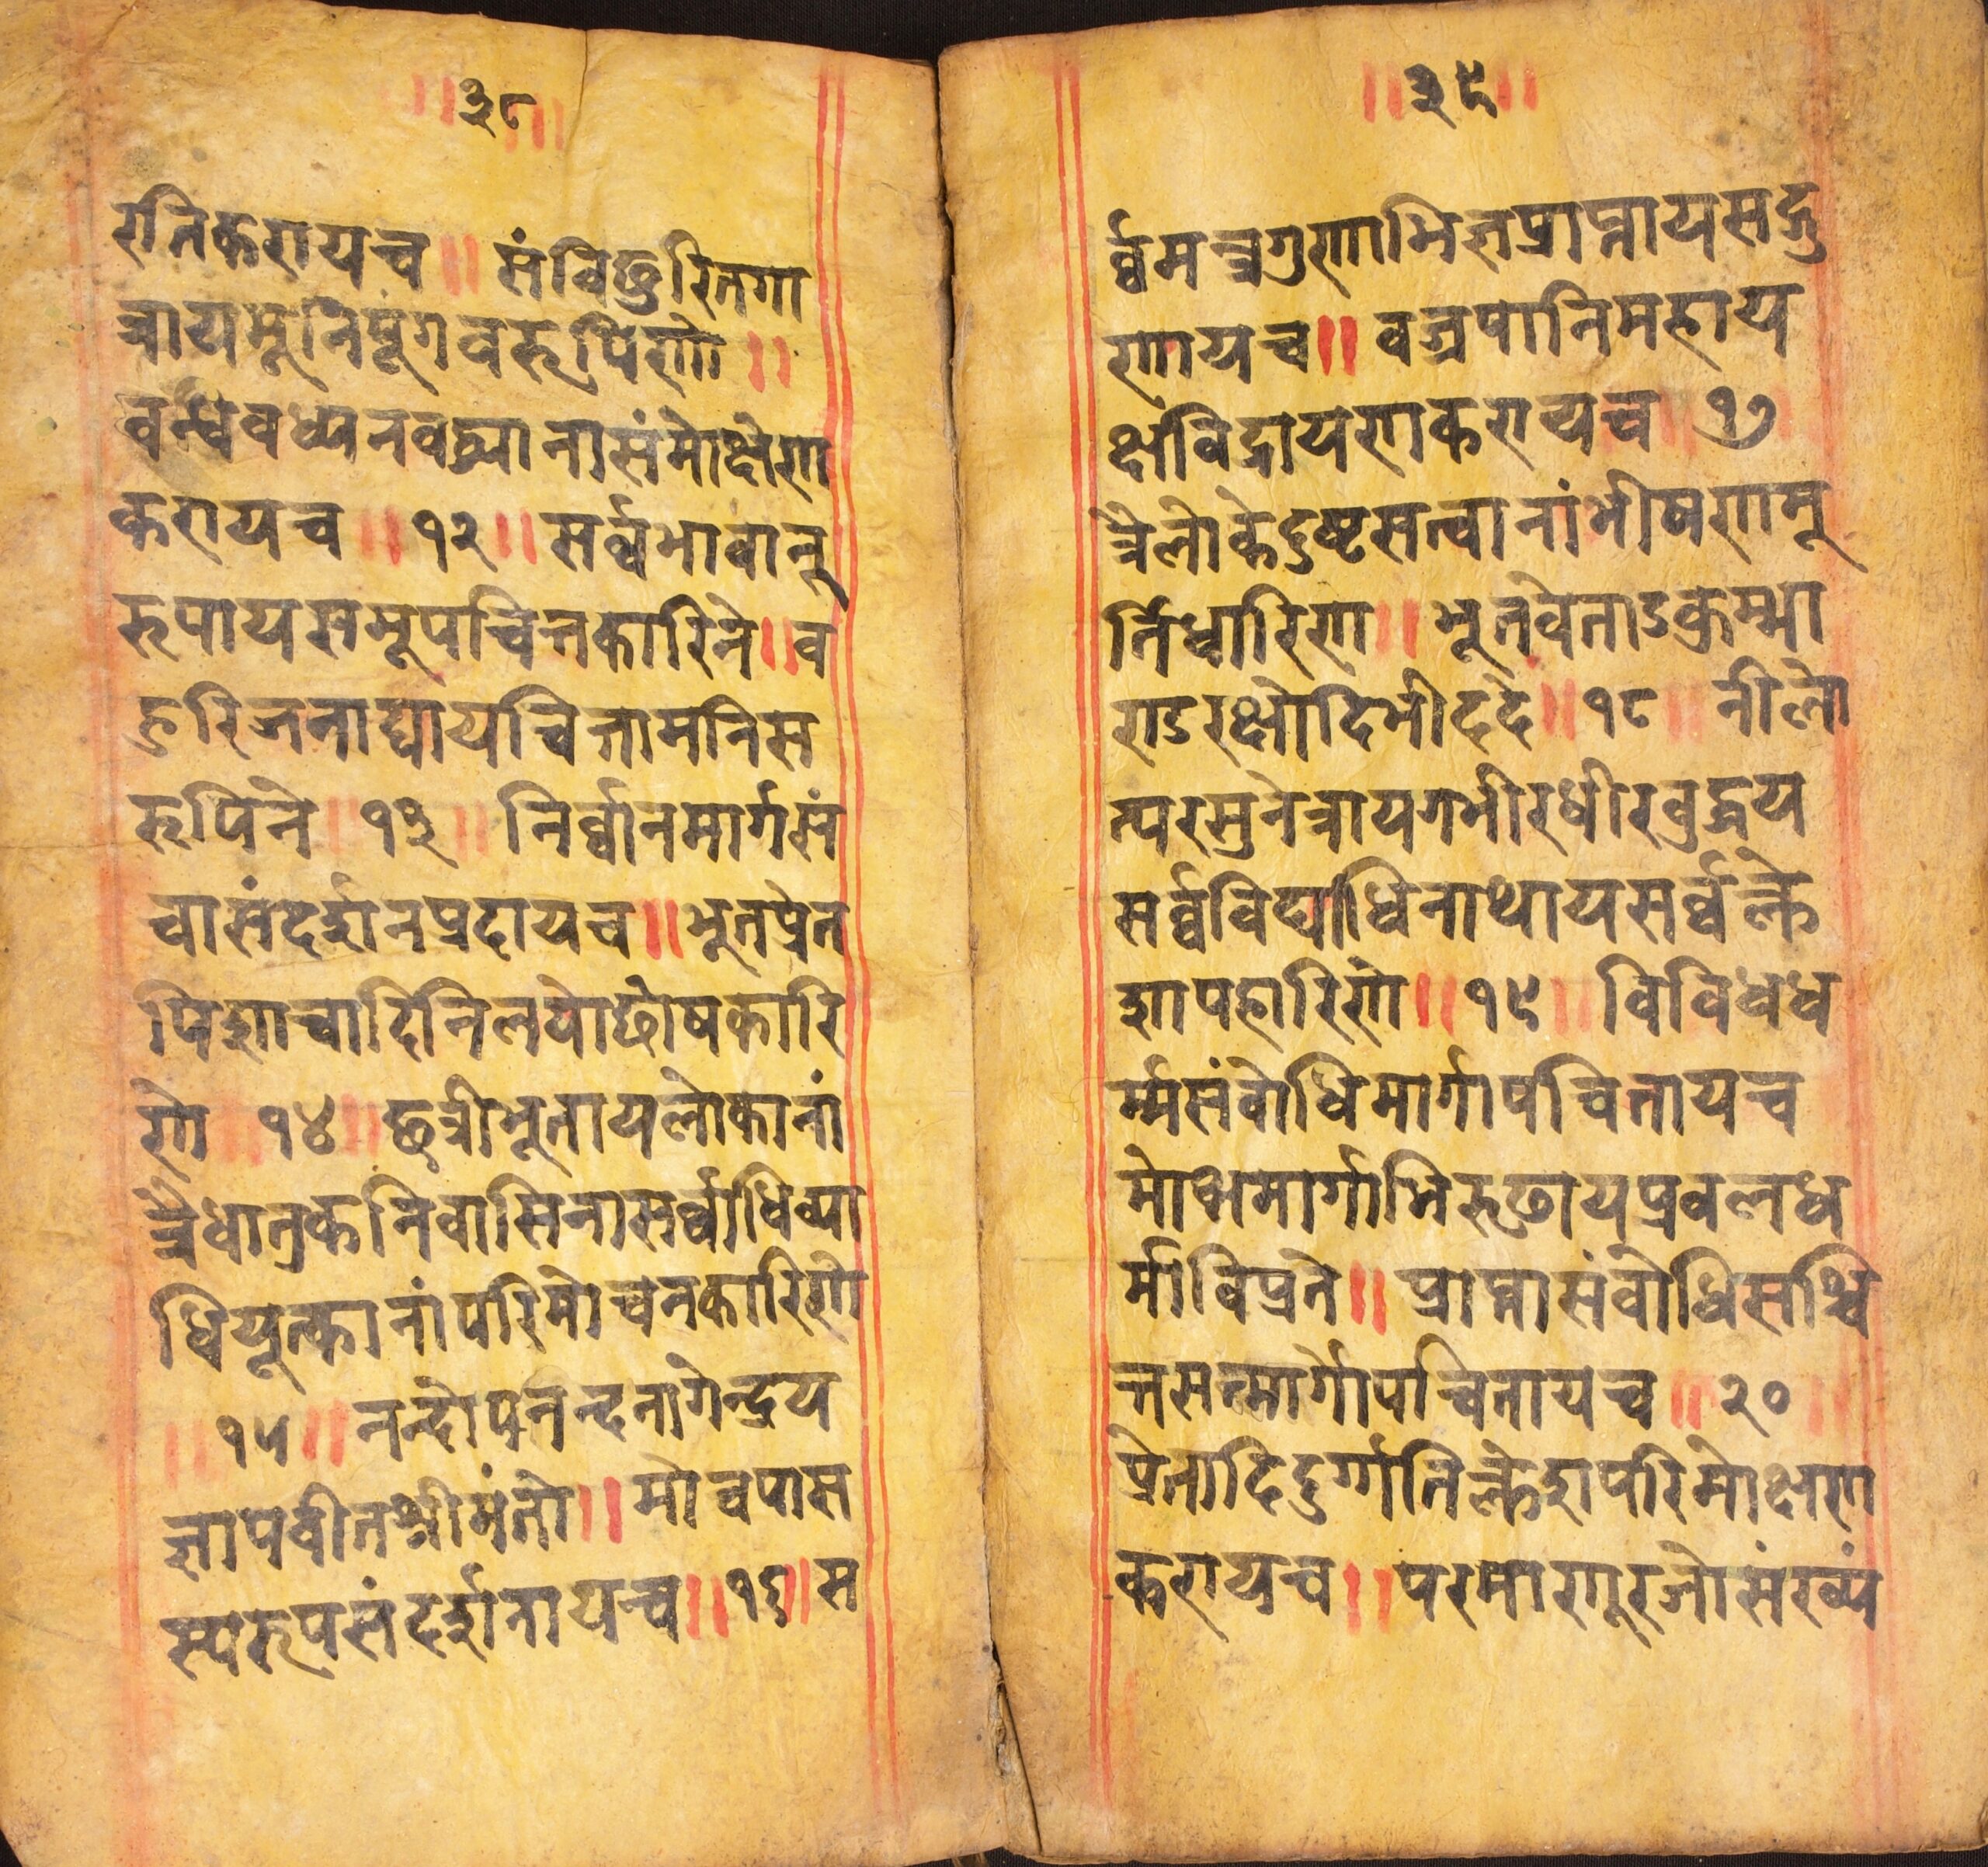 ॥३८॥
रतिकरायच ॥ संविछुरितगा
त्रायमूनिपूंगवरूपिणे ॥
वन्धवध्यनवद्धानासंमोक्षण
करायच ॥ १२ ॥ सर्व्वभावानू
रूपायसमूपचित्तकारिने ॥ व
हुरिजनाद्यायचित्तामनिस
रूपिने ॥ १३ ॥ निर्व्वानमार्गसं
चासंदर्शानप्रदायच ॥ भूतप्रेत
पिशाचादिनिलयोछोषकारि
णे ॥ १४ ॥ छत्रीभूतायलोकानां
त्रैधातुकनिवासिनासर्व्वाधिव्या
धियूक्तानांपरिमोचनकारिणे
॥ १५ ॥ नन्दोपनन्दनागेन्द्रय
ज्ञापवीतश्रीमंतो ॥ मोचपास
स्यरूपसंदर्शनायच ॥ १६ ॥ स
॥३९॥
र्व्वमन्त्रगुणाभिज्ञप्राप्तायसद्गु
णायच ॥ वज्रपानिमहाय
क्षविद्रायणकरायच ॥ १७
त्रैलोकेदुष्टसत्वानांभीषणमू
र्तिधारिण ॥ भूतवेताऽक्रम्भा
राऽरक्षोदिभीददे ॥ १८ ॥ नीलो
त्परसुनेत्रायगभीरधीरवुद्धय
सर्व्वविद्याधिनाथायसर्व्वक्ले
शापहारिणे ॥ १९ ॥ विविधध
र्म्मसंवोधिमार्गापचितायच
मोक्षमार्गाभिरुढायप्रवलध
र्माविप्रते ॥ प्राप्तासंवोधिसच्चि
त्तसन्मार्गोपचितायच ॥ २० ॥
प्रेतादिदुर्ग्गतिक्लेशपरिमोक्षण
करायच ॥ परमाणूरजोसंख्यं